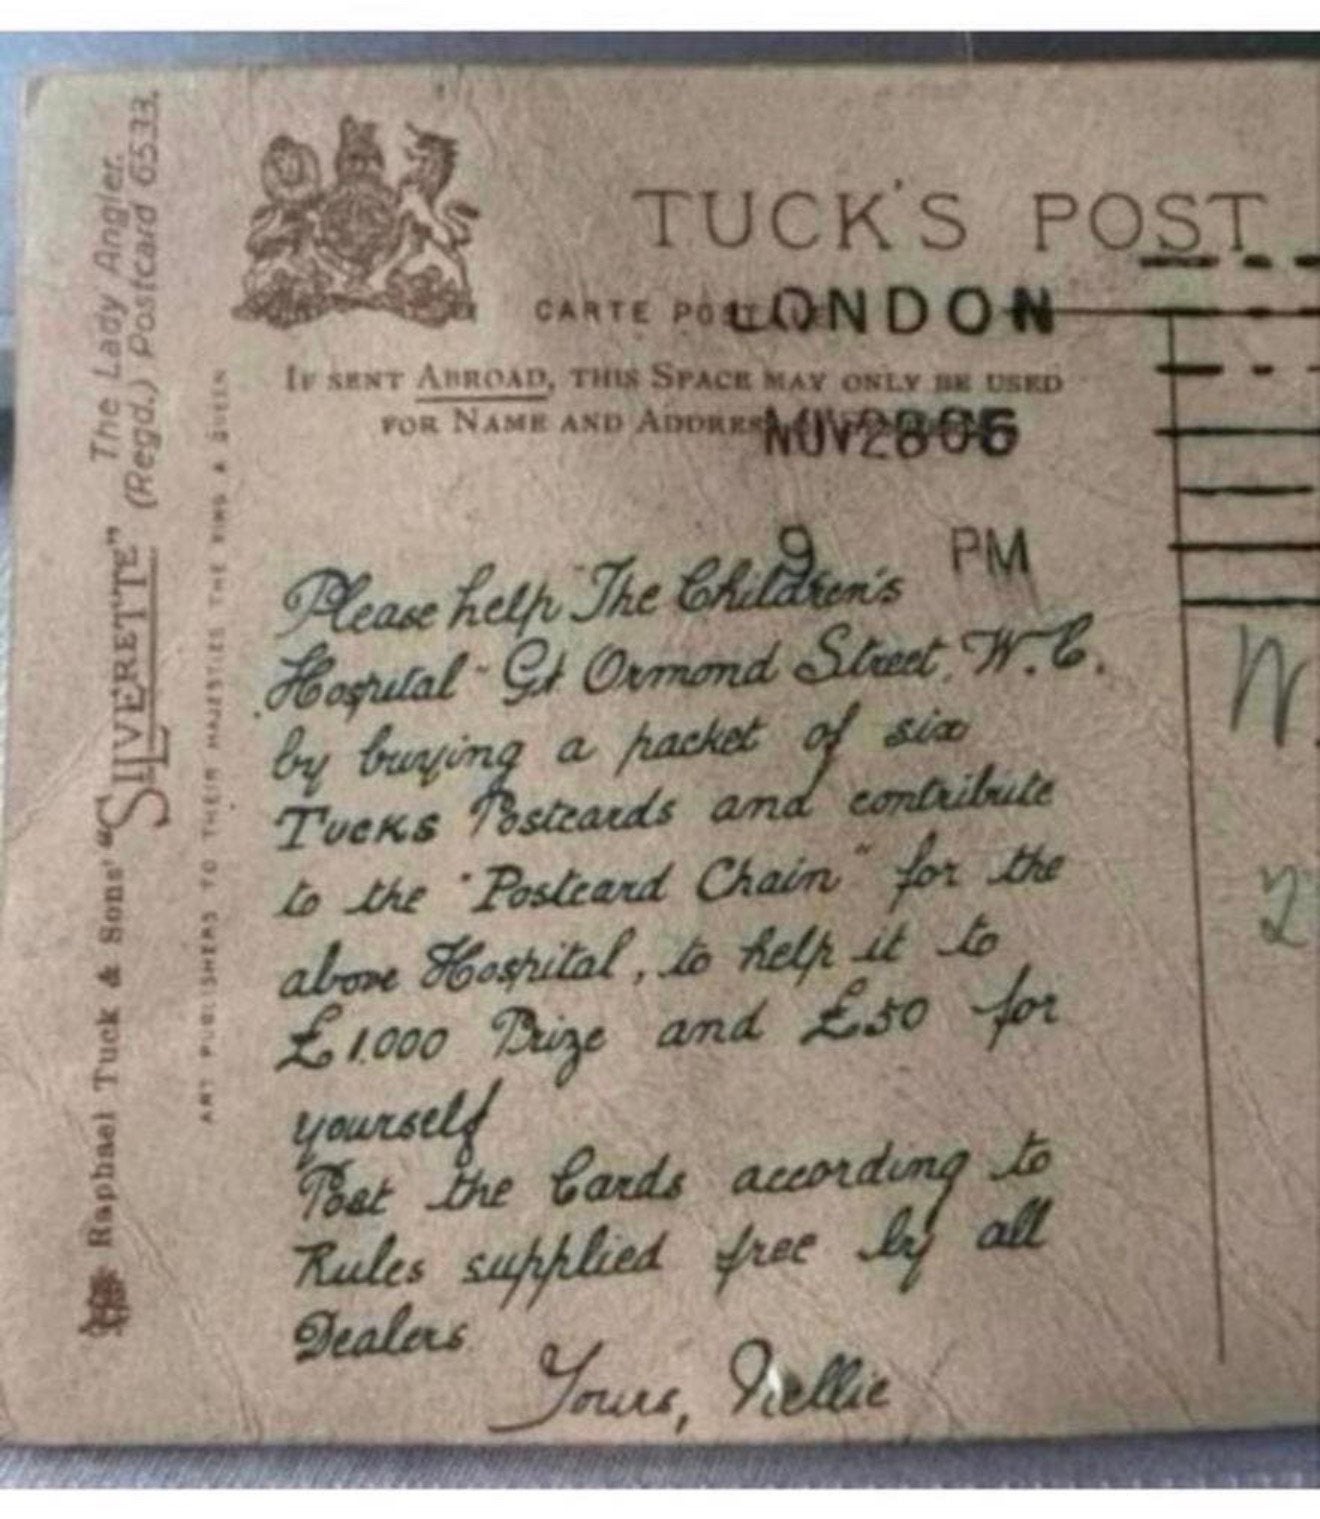 TUCK'S POST
CARTE POST
LONDON
IF SENT ABROAD, THIS SPACE MAY ONLY BE USED
FOR NAME AND ADDRESS
NOV 28 06
9 PM
Please help "The Children's
Hospital" Gt Ormond Street, W.C.
by buying a packet of six
TUCKS Postcards and contribute
to the "Postcard Chain" for the
above Hospital, to help it to
£1.000 Prize and £50 for
yourself
Post the Cards according to
Rules supplied free by all
Dealers
Yours, Nellie
Raphael Tuck & Sons' "SILVERETTE" The Lady Angler.
(Regd.) Postcard 6533.
ART PUBLISHERS TO THEIR MAJESTIES THE KING & QUEEN